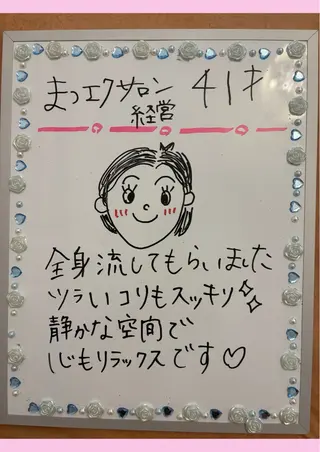 まつエクサロン 41才
経営
全身流してもらいました
ツラいコリもスッキリ✧✧
静かな空間で
心もリラックスです♡